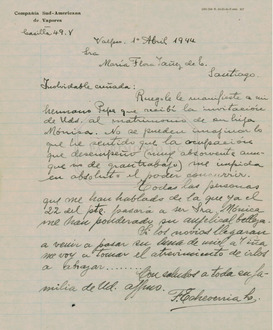 Compañía Sud-Americana
de Vapores
Casilla 49.V
Valpso. 1º Abril 1944
Sra
María Flora Yañez de E.
Santiago
Inolvidable cuñada:
Ruegole manifieste a mi
hermano Pepe que recibí la invitación
de Uds. al matrimonio de su hija
Mónica. No se pueden imaginar lo
que he sentido que la ocupación
que desempeño (muy absorvente aun-
que no de gran trabajo) me impida
en absoluto el poder concurrir.
Todas las personas
que me han hablado de la que ya el
22 del pte. pasará a ser Sra. Mónica
me han ponderado su angelical belleza.
Si los novios llegaran
a venir a pasar su luna de miel a Viña
me voy a tomar el atrevimiento de irlos
a abrazar
Con saludos a toda su fa-
milia de Ud. affmo.
F. Echeverría L.